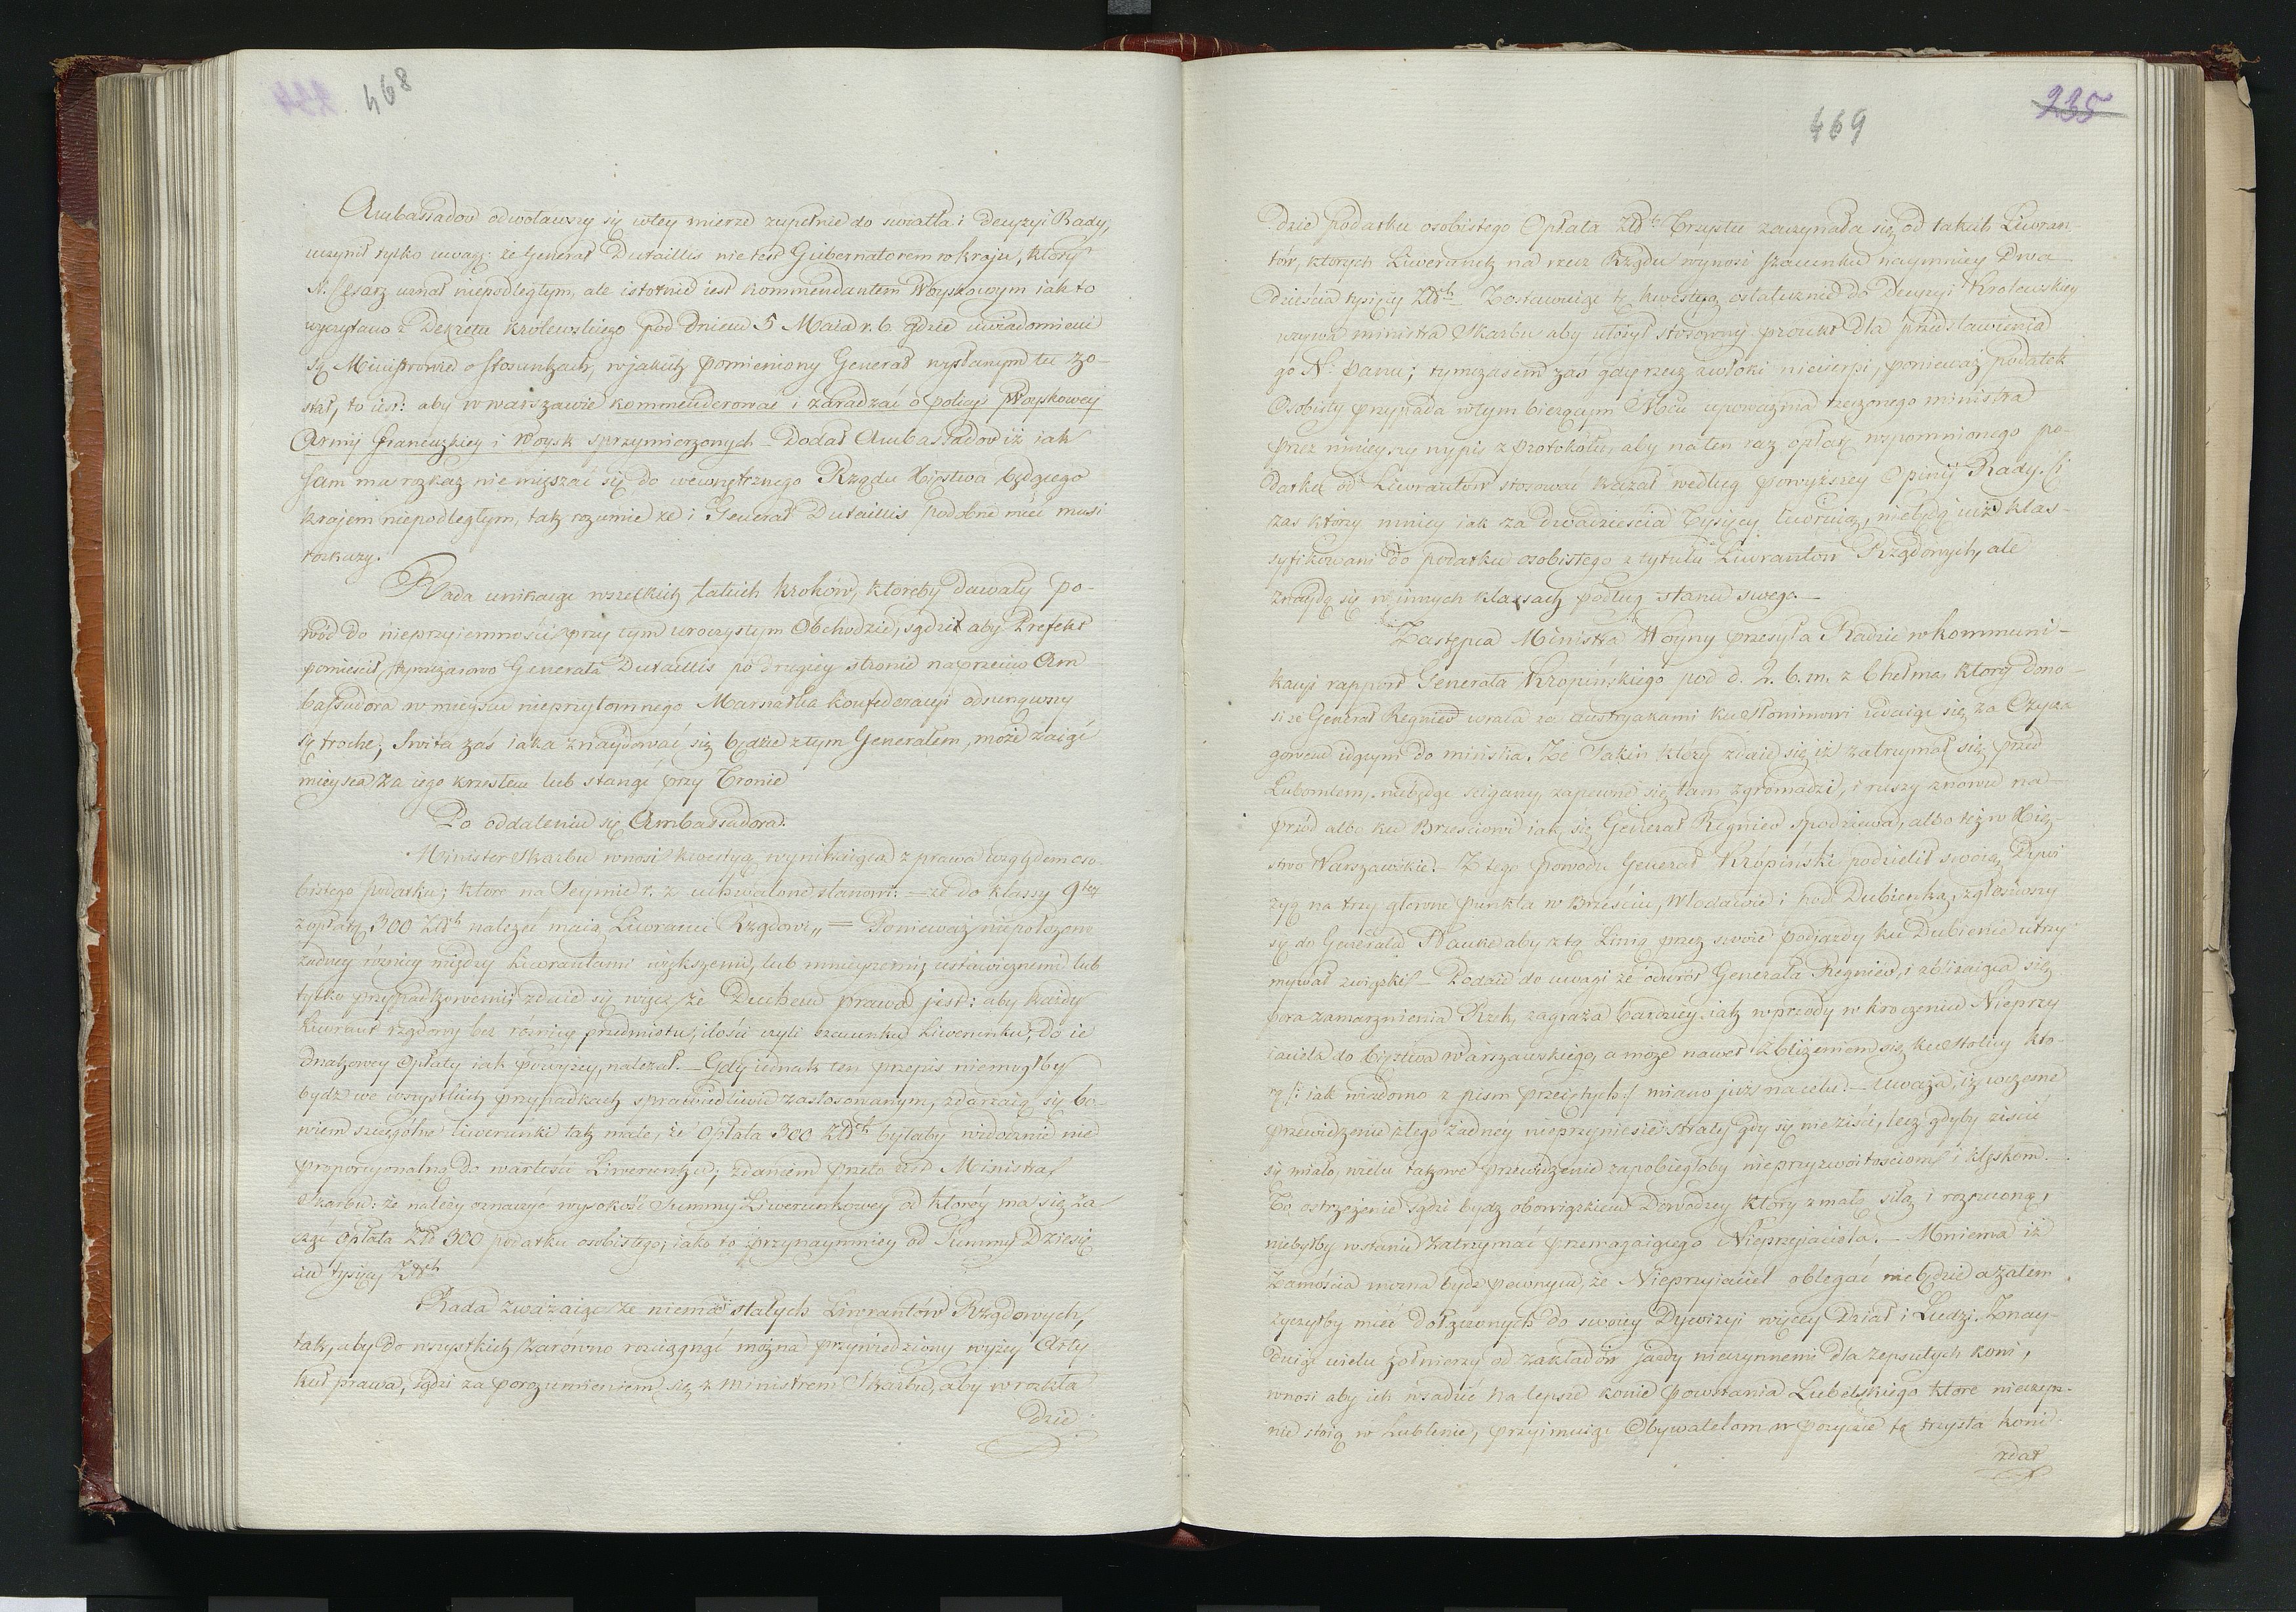 468
Ambassador odwoławszy się w tey mierze zupełnie do swiatła i decyzyi Rady,
uczynił tylko uwagę: że Generał Dutaillis nie iest Gubernatorem w kraju, który
N. Cesarz uznał niepodległym, ale istotnie iest kommendantem Woyskowym iak to
wyczytano z Dekretu królewskiego pod dniem 5 Maia r. b. gdzie uwiadomieni
są Ministrowie o stosunkach, w jakich pomieniony Generał wysłanym tu zo-
stał, to iest: aby w warszawie kommenderować i zaradzać o policyi Woyskowey
Armij francuzkiey i Woysk sprzymierzonych – Dodał Ambassador iż iak
sam ma rozkaz nie mięszać się do wewnętrznego Rządu Xięstwa będącego
krajem niepodległym, tak rozumie że i Generał Dutaillis podobne mieć musi
rozkazy.
Rada unikaiąc wszelkich takich kroków, któreby dawały po-
wód do nieprzyiemności przy tym uroczystym Obchodzie, sądzi aby Prefekt
pomieścił tymczasowo Generała Dutaillis po drugiey stronie naprzeciw Am
bassadora w mieyscu nieprzytomnego Marszałka konfederacyi odsunąwszy
ią troche; Swita zaś iaka znaydować się będzie z tym Generałem, może zaiąć
mieysca za iego krzesłem lub stanąć przy Tronie
Po oddaleniu się Ambassadora.
Minister Skarbu wnosi kwestyą wynikaiącą z prawa względem oso-
bistego podatku; które na Seymie r. z. uchwalone stanowi: – że do klassy 9tey
z opłatą 300 Złch należeć maią Liweranci Rządowi „ = Ponieważ niepołożono
żadney różnicy między Liwerantami większemi, lub mnieyszemi, ustawicznemi lub
tylko przypadkowemi; zdaie się więc, że Duchem prawa jest: aby każdy
Liwerant rządowy bez różnicy przedmiotu, ilości czyli szacunku Liwerunku, do ie
dnakowey Opłaty iak powyżey, należał. – Gdy iednak ten przepis niemógłby
bydź we wszystkich przypadkach sprawiedliwie zastosowanym, zdarzaią się bo-
wiem szczególne liwerunki tak małe, że Opłata 300 Złch byłaby widocznie nie
proporcyonalną do wartości Liwerunku; zdaniem przeto iest Ministra
Skarbu: że należy oznaczyć wysokość Summy Liwerunkowey od którey ma się za
cząć Opłata Złł 300 podatku osobistego; iako to przynaymniey od Summy Dziesię
ciu tysięcy Złch
Rada zważaiąc, że niema stałych Liwerantów Rządowych,
tak, aby do wszystkich zarówno rozciągnąć można przywiedziony wyżey Arty
kuł prawa, sądzi za porozumieniem się z Ministrem Skarbu, aby w rozkła
dzie
235
469
dzie podatku osobistego Opłata Złch Trzystu zaczynała się od takich Liweran-
tów, których Liwerunek na rzecz Rządu wynosi szacunku naymniey Dwa
dzieścia tysięcy Złch – Zostawuiąc tę kwestyą ostatecznie do Decyzyi Krolewskiey
wzywa ministra Skarbu aby ułożył stosowny proiekt dla przedstawienia
go N: Panu; tymczasem zaś gdy rzecz zwłoki niecierpi, ponieważ podatek
Osobisty przypada w tym bieżącym Mcu upoważnia rzeczonego ministra
przez ninieyszy wypis z protokołu, aby na ten raz opłatę wspomnionego po-
datku od Liwerantów stosować kazał według powyższey Opinij Rady. Ci
zas którzy mniey iak za dwadzieścia Tysięcy liweruią, niebędą iuż klas-
syfikowani do podatku osobistego z tytułu Liwerantów Rządowych, ale
znaydą się w innych klassach podług stanu swego. –
Zastępca Ministra Woyny przesyła Radzie w kommuni-
kacyi rapport Generała Kropińskiego pod d. 2. b. m. z Chełma, który dono-
si że Generał Regnier wraca za austryakami ku Słonimowi udaiąc się za Czycza
gowem idącym do mińska. Że Sakin który zdaie się iż zatrzymał się przed
Lubomlem, niebędąc ścigany, zapewne się tam zgromadzi, i ruszy znowu na-
przód albo ku Brześciowi iak się Generał Regnier spodziewa, albo też w Xię-
stwo Warszawskie. – Z tego powodu Generał Kropiński podzielił swoią Dywi
zyą na trzy główne punkta w Brześciu, Włodawie i pod Dubienką, zgłosiwszy
się do Generała Hauke aby z tą Linią przez swoie podjazdy ku Dubience utrzy
mywał związki – Podaie do uwagi że odwrót Generała Regnier, i zbliżaiąca się
pora zamarznienia Rzek, zagraża bardziey iak wprzódy wkroczeniu Nieprzy
iaciela do Xięstwa Warszawskiego, a może nawet zbliżeniem się ku Stolicy któ-
rą /: iak wiadomo z pism przeiętych :/ miano już na celu. – Uważa, iż wczesne
przewidzenie złego żadney nieprzyniesie straty, gdy się nieziści, lecz gdyby ziścić
się miało, wielu takowe przewidzenie zapobiegłoby nieprzyzwoitościom i klęskom. –
To ostrzeżenie sądzi bydź obowiązkiem Dowódzcy który z małą siłą i rozrzuconą,
niebyłby w stanie zatrzymać przemagaiącego Nieprzyiaciela. – Mniema iż
Zamościa można bydź pewnym, że Nieprzyiaciel oblegać nie będzie a zatem
życzyłby mieć dołączonych do swoiey Dywizyi więcey Dział i Ludzi. Znay-
duiąc wielu żołnierzy od zakładów jazdy nieczynnemi dla zepsutych koni,
wnosi aby ich wsadzić na lepsze konie powstania Lubelskiego które nieczyn-
nie stoią w Lublinie, przyimuiąc Obywatelom w pozycie te trzysta koni
zdat